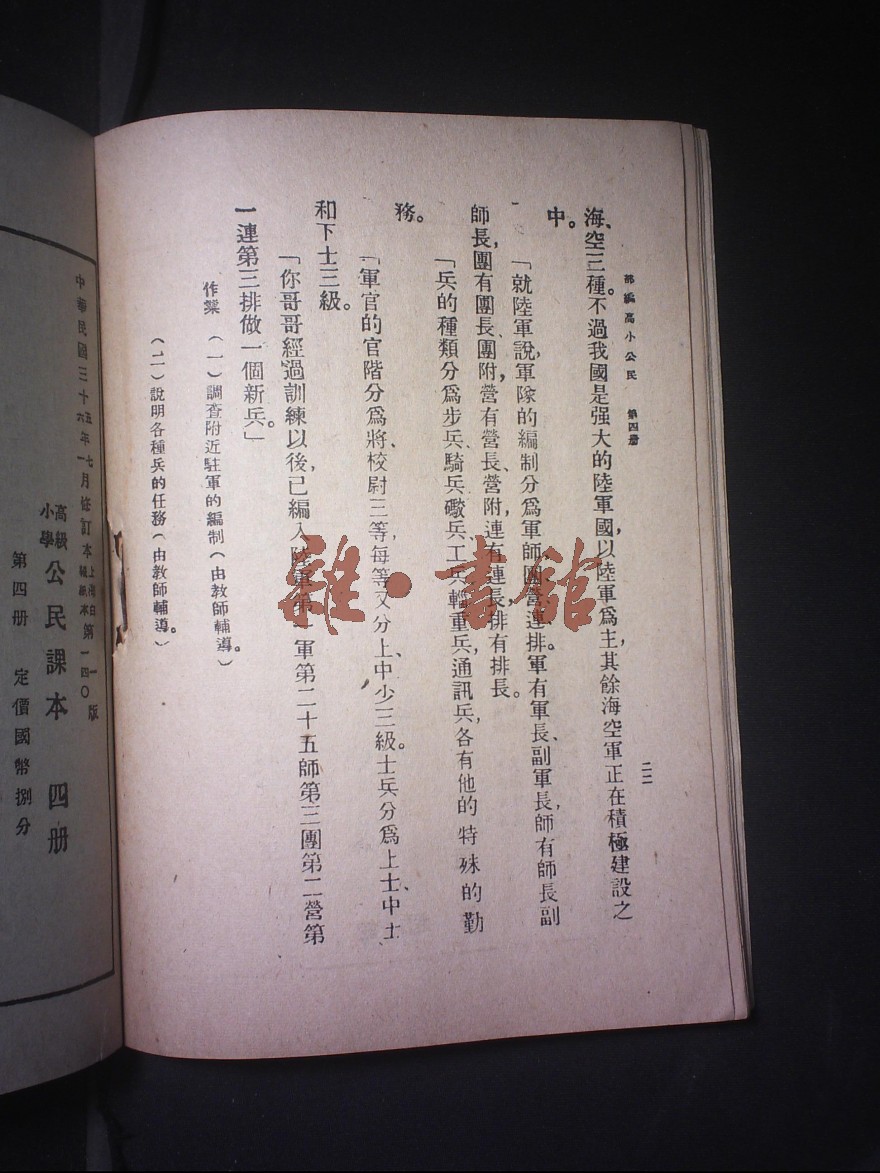 部編高小公民 第四册
二二
海、空三種。不過我國是强大的陸軍國，以陸軍爲主，其餘海空軍正在積極建設之
中。
「就陸軍說，軍隊的編制分爲軍師團營連排。軍有軍長、副軍長，師有師長、副
師長，團有團長、團附，營有營長、營附，連有連長，排有排長。
「兵的種類分爲步兵、騎兵、礮兵、工兵、輜重兵，通訊兵，各有他的特殊的勤
務。
「軍官的官階分爲將、校、尉三等，每等又分上、中、少三級。士兵分爲上士、中士、
和下士三級。
「你哥哥經過訓練以後，已編入陸軍第一軍第二十五師第三團第二營第
一連第三排做一個新兵。」
作業 （一）調查附近駐軍的編制（由教師輔導。）
（二）說明各種兵的任務（由教師輔導。）
雜·書館
中華民國三十五年七月修訂本上海白報紙本第一版
六 一 一四〇
高級小學 公民課本 四册
第四册 定價國幣捌分